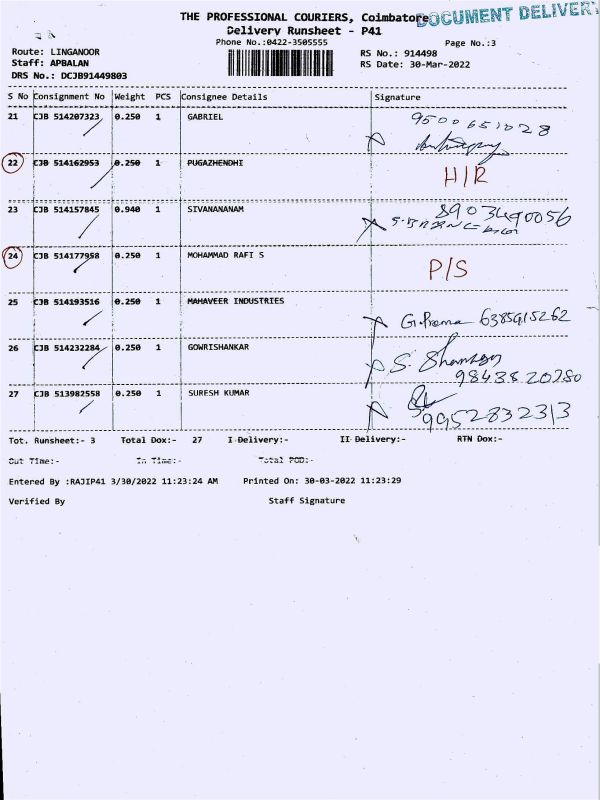 THE PROFESSIONAL COURIERS, Coimbatore
DOCUMENT DELIVERY
Delivery Runsheet - P41
Phone No.:0422-3505555
Page No.:3
Route: LINGANOOR
RS No.: 914498
Staff: APBALAN
RS Date: 30-Mar-2022
DRS No.: DCJB91449803
S No Consignment No Weight PCS Consignee Details Signature
21 CJB 514207323 0.250 1 GABRIEL 9500651028
22 CJB 514162953 0.250 1 PUGAZHENDHI H/R
23 CJB 514157845 0.940 1 SIVANANANAM 8903490056
24 CJB 514177958 0.250 1 MOHAMMAD RAFI S P/S
25 CJB 514193516 0.250 1 MAHAVEER INDUSTRIES G.Prema 6385915262
26 CJB 514232284 0.250 1 GOWRISHANKAR S.
9843820280
27 CJB 513982558 0.250 1 SURESH KUMAR
9952832313
Tot. Runsheet:- 3 Total Dox:- 27 I Delivery:- II Delivery:- RTN Dox:-
Out Time:- In Time:- Total POD:-
Entered By :RAJIP41 3/30/2022 11:23:24 AM Printed On: 30-03-2022 11:23:29
Verified By Staff Signature